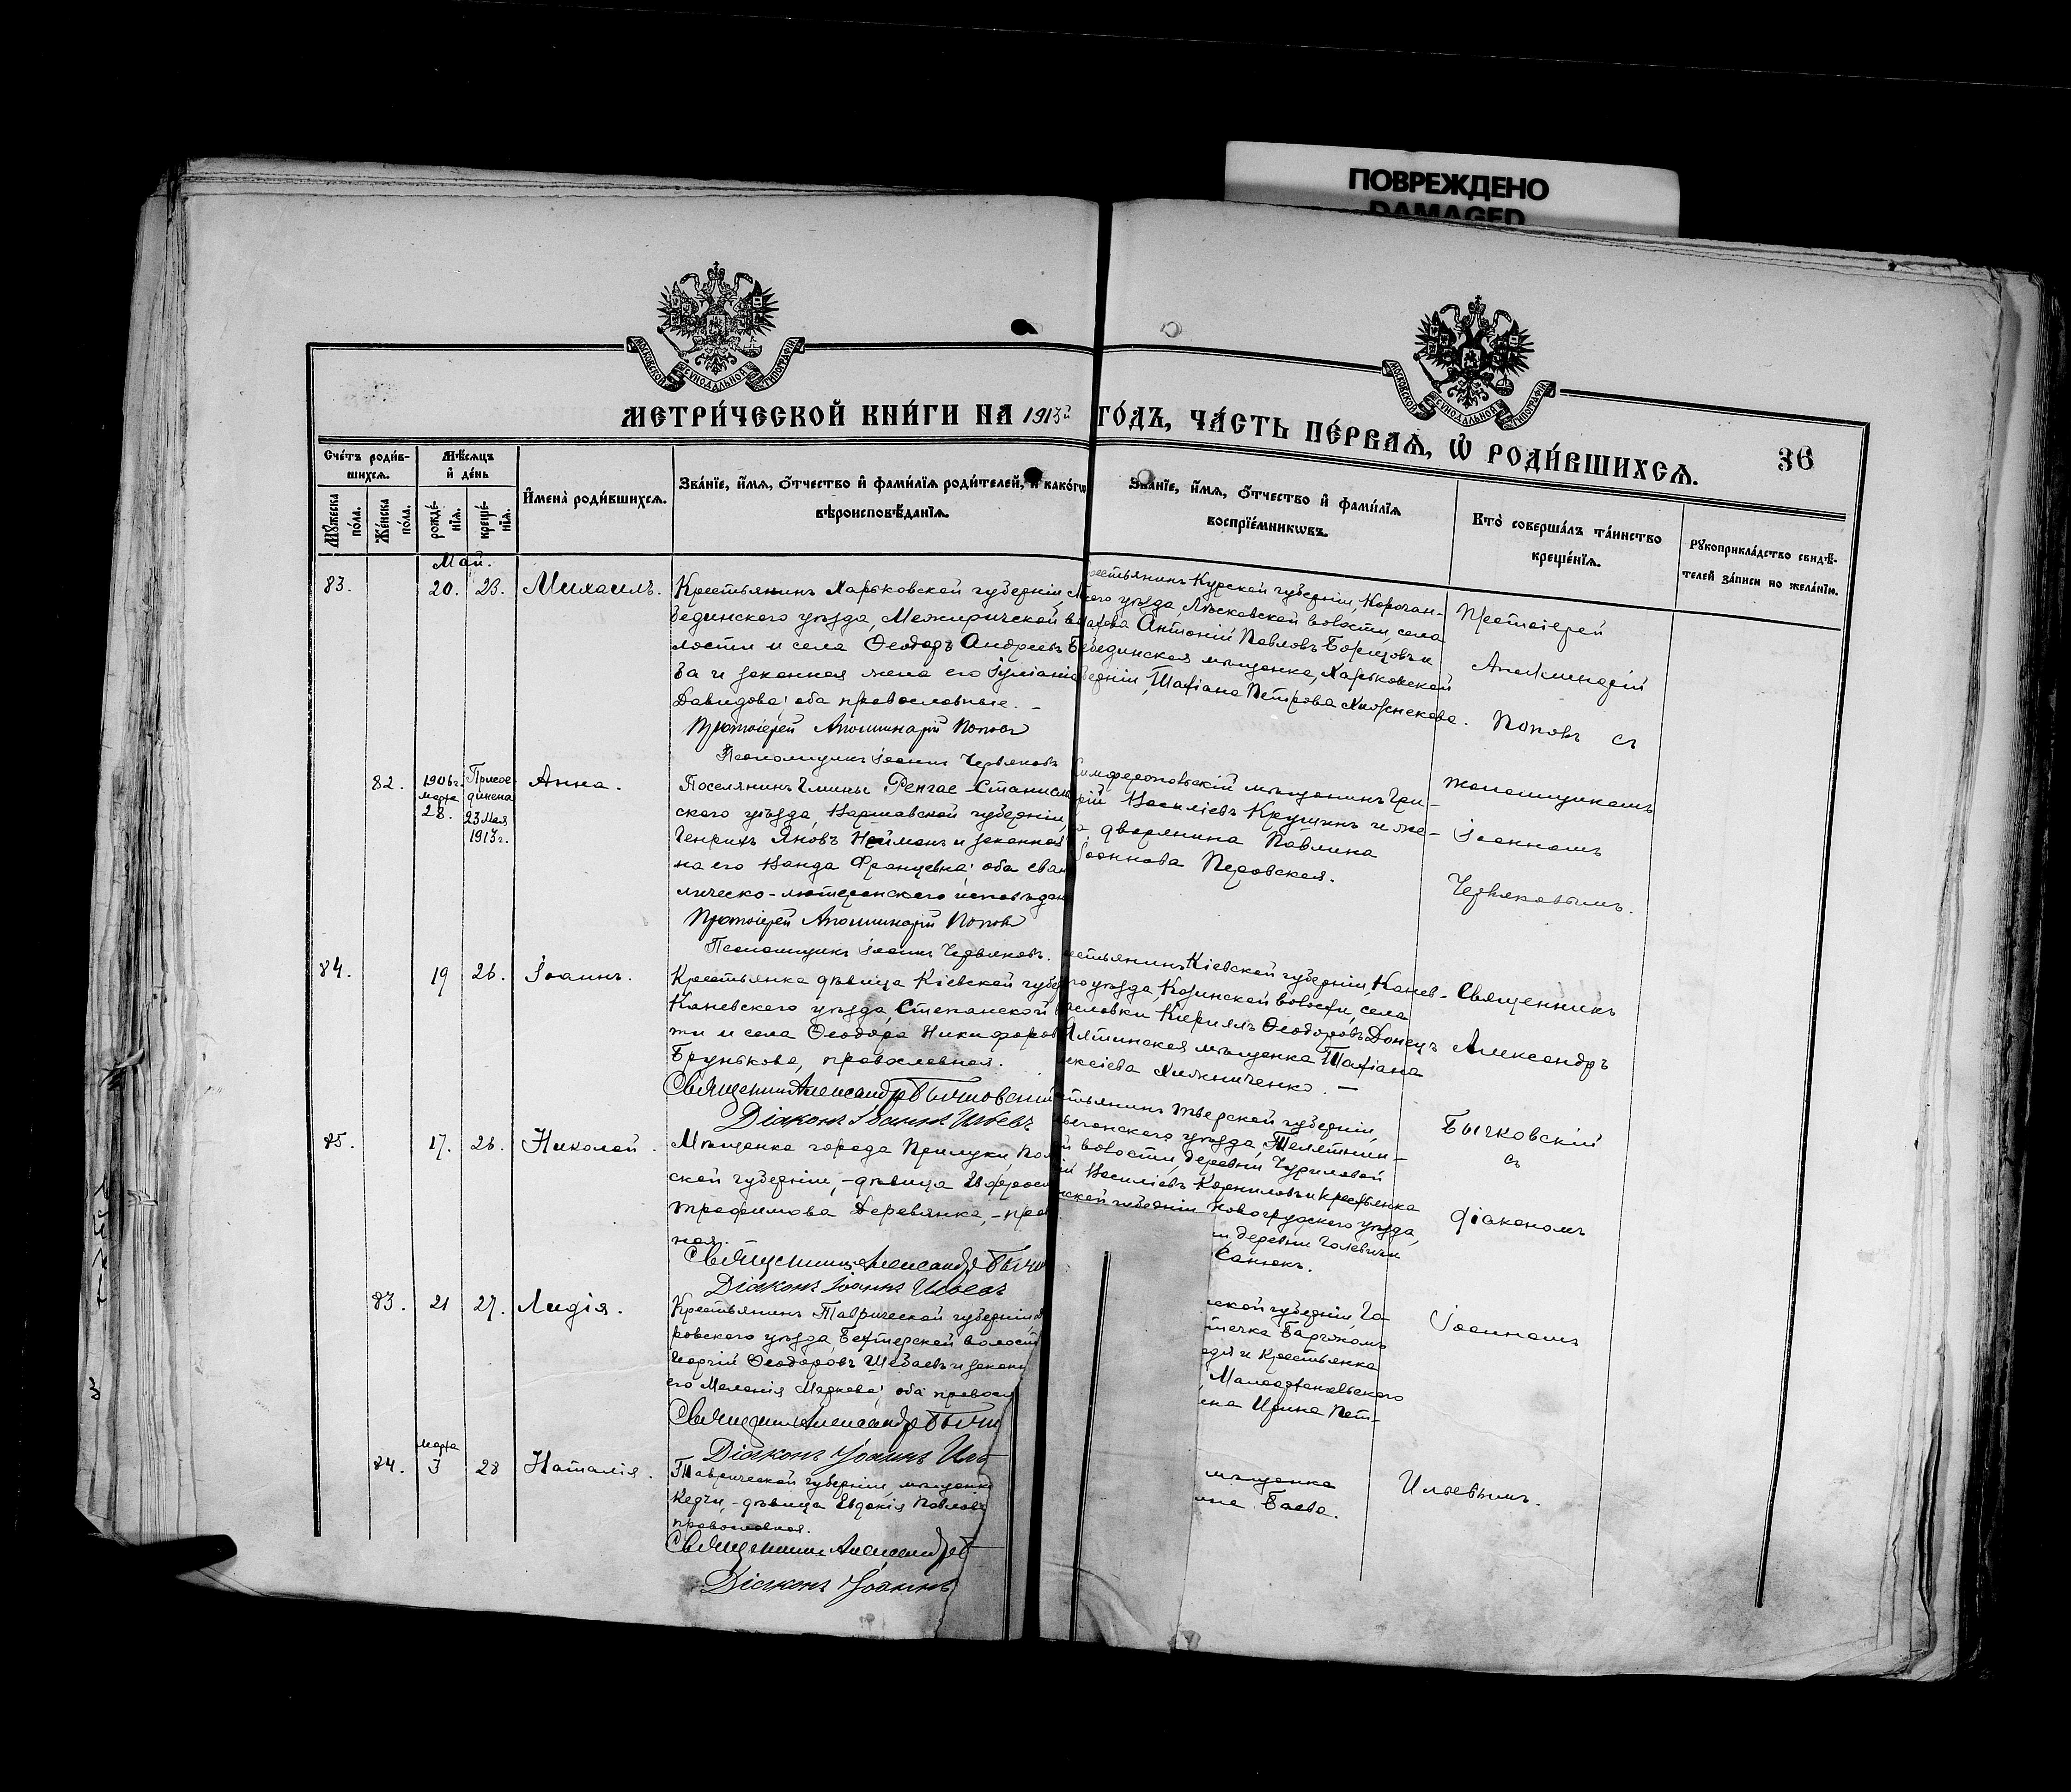 ПОВРЕЖДЕНО
DAMAGED
МОСКОВСКОЙ СѴНОДАЛЬНОЙ ТИПОГРАФІИ
МОСКОВСКОЙ СѴНОДАЛЬНОЙ ТИПОГРАФІИ
МЕТРИ́ЧЕСКОЙ КНИ́ГИ НА 1913й ГО́ДЪ, ЧА́СТЬ ПЕ́РВАѦ, Ѡ҆ РОДИ́ВШИХСѦ.
36
Сче́тъ роди́в-
шихсѧ.
Мꙋ́жеска по́ла.
Же́нска по́ла.
Мѣ́сѧцъ
и҆ де́нь
рожде́-
нїѧ.
креще́-
нїѧ.
И҆мена̀ роди́вшихсѧ.
Зва́нїе, и҆́мѧ, ѻ҆́тчество и҆ фами́лїѧ роди́телей, и҆ како́гѡ
вѣроисповѣ́данїѧ.
Зва́нїе, и҆́мѧ, ѻ҆́тчество и҆ фами́лїѧ
воспрїе́мникѡвъ.
Кто̀ соверша́лъ та́инство
креще́нїѧ.
Рꙋкоприкла́дство свидѣ́-
телей за́писи по жела́нїю.
Май.
83.
20.
23.
Михаилъ.
Крестьянинъ Харьковской губерніи, Ле-
бединскаго уѣзда, Межиричской во-
лости и села Ѳеодоръ Андреевъ
ва и законная жена его Іуліанія
Давидова; оба православные. –
Протоіерей Аполлинарій Поповъ
Псаломщикъ Іоаннъ Червяковъ
рестьянинъ Курской губерніи, Корочан-
каго уѣзда, волости, села
Антоній Павловъ Борисовъ и
ебединская мѣщанка, Харьковской
берніи, Татіана Петрова
Протоіерей
Аполлинарій
Поповъ съ
82.
1906 г.
марта
28.
Присое-
динена
23 Мая
1913 г.
Анна.
Поселянинъ Гмины Станисла
скаго уѣзда, Варшавской губерніи,
Генрихъ Яновъ Нейманъ и законная
на его Ванда Францевна; оба еван
лическо-лютеранскаго исповѣдан
Протоіерей Аполлинарій Поповъ
Псаломщикъ Іоаннъ Червяковъ.
Симферопольскій мѣщанинъ Гри-
рій Васильевъ Крушинъ и же-
дворянина Павлина
Іоаннова Перовская.
псаломщикомъ
Іоанномъ
Червяковымъ.
84.
19
26.
Іоаннъ.
Крестьянка дѣвица Кіевской губер
Каневскаго уѣзда, Степанской
ти и села Ѳеодора Никифоров
Брунькова, православная.
Священникъ Александръ Бычковскій
Діаконъ Іоаннъ Ильевъ
естьянинъ Кіевской губерніи, Канев-
го уѣзда, Козинской волости, села
Масловки Кириллъ Ѳеодоровъ Донецъ
Ялтинская мѣщанка Татіана
ексіева Хижниченко. –
Священникъ
Александръ
85.
17.
26.
Николай.
Мѣщанка города Прилуки, Пол
ской губерніи, – дѣвица
Трофимова Деревянка, – прав
ная.
Священникъ Александръ Бычк
Діаконъ Іоаннъ Ильевъ
стьянинъ Тверской губерніи,
ьегонскаго уѣзда, Телятин-
й волости, деревни Чуриловой
Васильевъ Корниловъ и крестьянка
нской губерніи Новогрудскаго уѣзда,
и деревни Голевичи
Санюкъ.
Бычковскій
съ
діакономъ
83.
21
27.
Лидія.
Крестьянинъ Таврической губерніи, Д
ровскаго уѣзда, Бехтерской волост
Георгій Ѳеодоровъ Шебаевъ и законн
его Меланія Маркова; оба правосл
Священникъ Александръ Бычк
Діаконъ Іоаннъ Иль
ской губерніи, Га-
течка
и крестьянка
Малоархангельскаго
Ирина Пет-
Іоанномъ
84.
марта
3
28
Наталія.
Таврической губерніи, мѣщанка
Керчи, – дѣвица Евдокія Павлов
православная.
Священникъ Александръ Б
Діаконъ Іоаннъ
мѣщанка
Баева.
Ильевымъ.